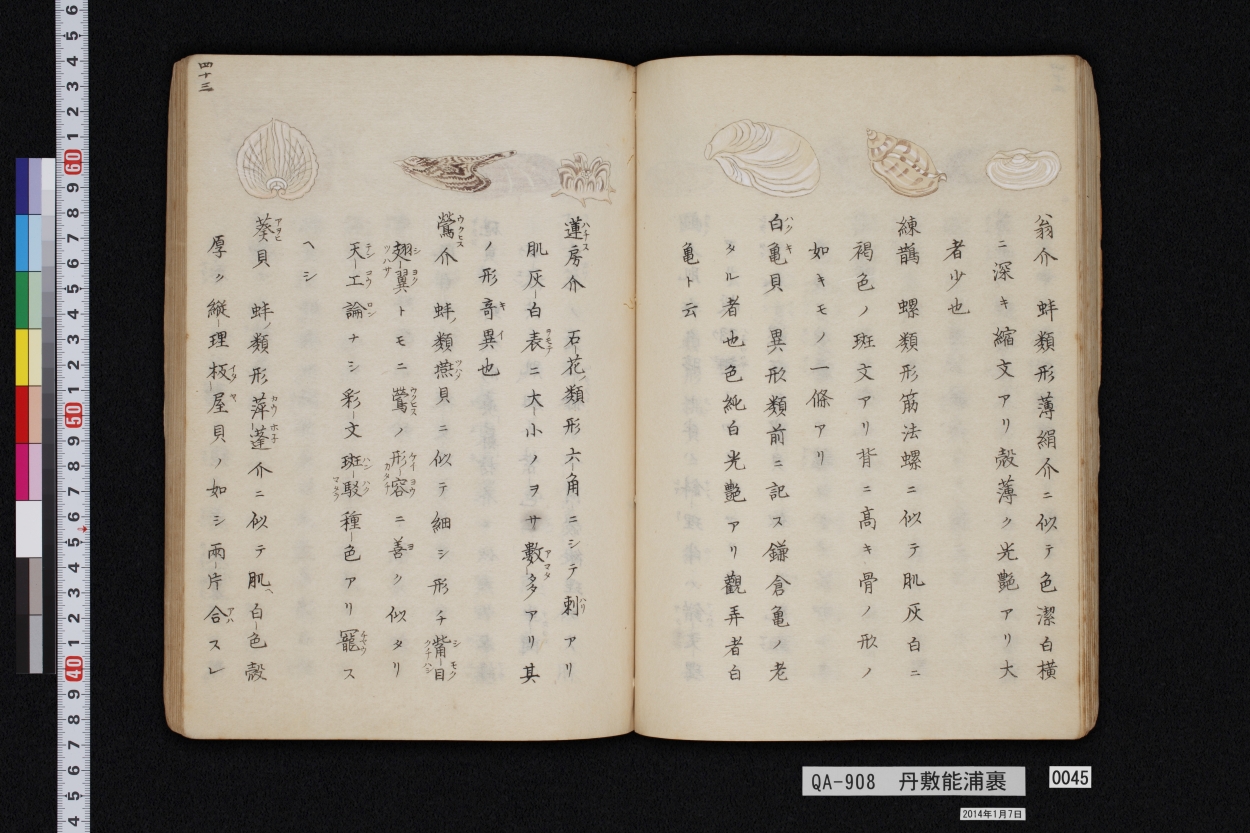 翁介 蚌類形薄絹介ニ似テ色潔白横
ニ深キ縮文アリ殻薄ク光艶アリ大
者少也
練鵲 螺類形筋法螺ニ似テ肌灰白ニ
褐色ノ斑文アリ背ニ高キ骨ノ形ノ
如キモノ一條アリ
白亀貝 異形類前ニ記ス鎌倉亀ノ老
タル者也色純白光艶アリ觀弄者白
亀ト云
蓮房介 石花類形六角ニシテ刺アリ
肌灰白表ニ大小ノヲサ數多アリ其
ノ形竒異也
鶯介 蚌ノ類燕貝ニ似テ細シ形チ觜目
翅翼トモニ鶯ノ形容ニ善ク似タリ
天工論ナシ彩文斑駁種色アリ寵ス
ヘシ
葵貝 蚌ノ類形萍蓬介ニ似テ肌白色殻
厚ク縦理板屋貝ノ如シ兩片合スレ
四十三
QA-908 丹敷能浦裹
0045
2014年1月7日